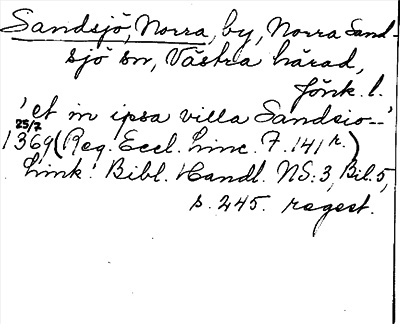 Sandsjö, Norra, by, Norra Sand-
sjö sn, Västra härad,
Jönk. l.
'et in ipsa villa Sandsio--'
25/7
1369 (Reg. Eccl. Linc. F. 141 r.)
Link. Bibl. Handl. NS:3, Bil. 5,
s. 245. regest.